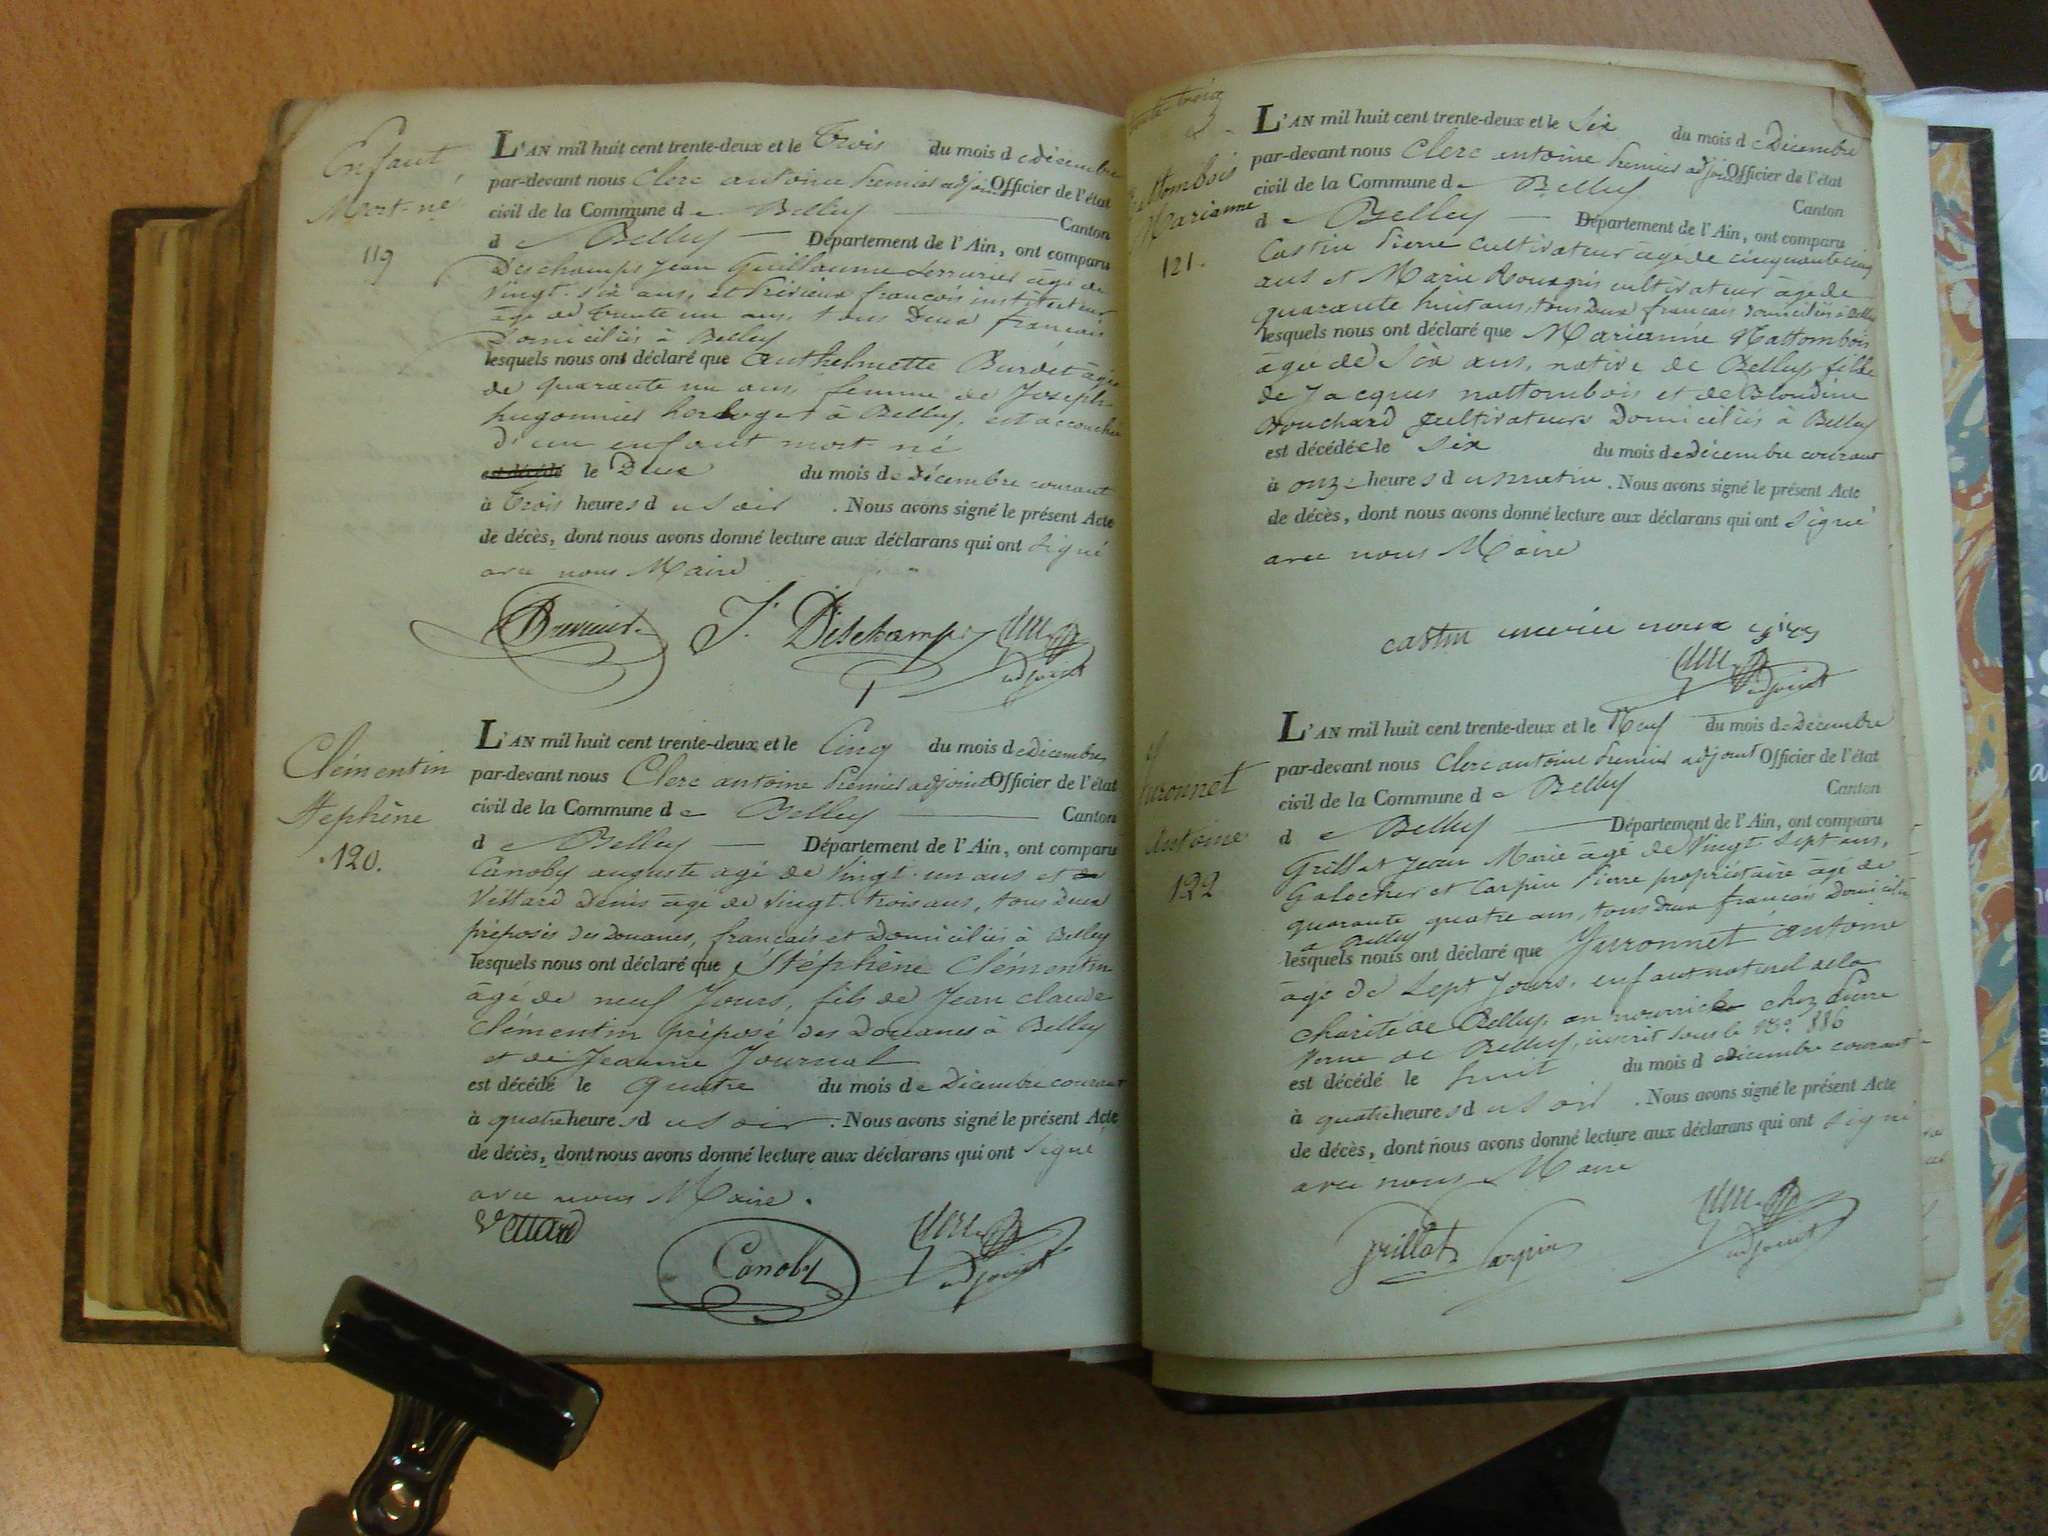 Enfant
Mort-né
119
L'AN mil huit cent trente-deux et le Trois du mois de Décembre
par-devant nous Clerc antoine premier adjoint Officier de l'état
civil de la Commune de Belley Canton
de Belley Département de l'Ain, ont comparu
Deschamps Jean Guillaume serrurier âgé de
vingt-six ans, et françois instituteur
âgé de trente un ans, tous Deux français
Domiciliés à Belley
lesquels nous ont déclaré que anthelmette Burdet âgée
de quarante un ans, femme de Joseph
hugonnier horloger à Belley, est accouchée
d'un enfant mort-né
est décédé le Deux du mois de Décembre courant
à trois heures du soir . Nous avons signé le présent Acte
de décès, dont nous avons donné lecture aux déclarans qui ont signé
avec nous Maire
J. Deschamps Clerc
adjoint
Clémentin
Stephène
120.
L'AN mil huit cent trente-deux et le Cinq du mois de Décembre
par-devant nous Clerc antoine premier adjoint Officier de l'état
civil de la Commune de Belley Canton
de Belley Département de l'Ain, ont comparu
Canoby auguste agé de vingt-un ans et
Vettard Denis âgé de vingt-trois ans, tous Deux
préposés des Douanes, français et Domiciliés à Belley
lesquels nous ont déclaré que Stéphène Clémentin
âgé de neuf Jours, fils de Jean claude
Clémentin préposé des Douanes à Belley
et de Jeanne Journal
est décédé le quatre du mois de Décembre courant
à quatre heures du soir . Nous avons signé le présent Acte
de décès, dont nous avons donné lecture aux déclarans qui ont signé
avec nous Maire.
Vettard Canoby Clerc
adjoint
Nattombois
Marianne
121.
L'AN mil huit cent trente-deux et le Six du mois de Décembre
par-devant nous Clerc antoine premier adjoint Officier de l'état
civil de la Commune de Belley Canton
de Belley Département de l'Ain, ont comparu
Castin Pierre cultivateur âgé de cinquante cinq
ans et Marie cultivateur âgé de
quarante huit ans, tous Deux français Domiciliés à Belley
lesquels nous ont déclaré que Marianne Nattombois
âgée de Six ans, native de Belley fille
de Jacques nattombois et de Blondine
Bouchard cultivateurs Domiciliés à Belley
est décédée le Six du mois de décembre courant
à onze heures du matin . Nous avons signé le présent Acte
de décès, dont nous avons donné lecture aux déclarans qui ont signé
avec nous Maire
castin
Clerc
adjoint
Antoine
122
L'AN mil huit cent trente-deux et le Neuf du mois de Décembre
par-devant nous Clerc antoine premier adjoint Officier de l'état
civil de la Commune de Belley Canton
de Belley Département de l'Ain, ont comparu
Grillat Jean Marie âgé de vingt sept ans,
Galocher et Carpin Pierre propriétaire âgé de
quarante quatre ans, tous Deux français Domiciliés
à Belley
lesquels nous ont déclaré que antoine
âgé de Sept Jours, enfant naturel de la
charité de Belley, en nourrice chez pierre
de Belley, inscrit sous le N° 886
est décédé le huit du mois de décembre courant
à quatre heures du soir . Nous avons signé le présent Acte
de décès, dont nous avons donné lecture aux déclarans qui ont signé
avec nous Maire
Grillat Carpin Clerc
adjoint